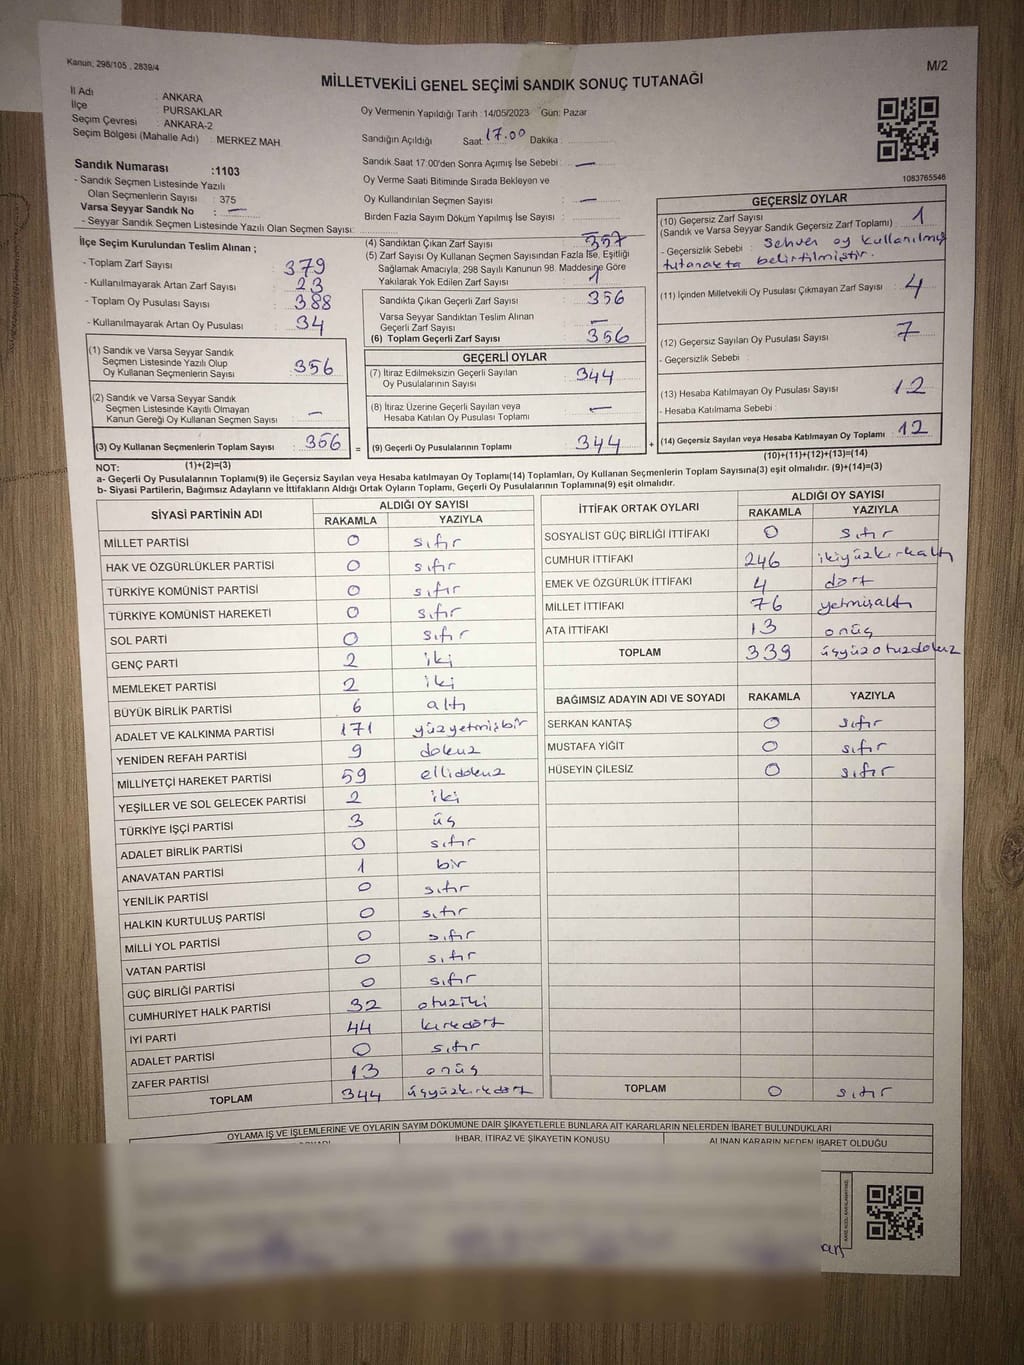 Kanun, 298/105 , 2839/4
M/2
MİLLETVEKİLİ GENEL SEÇİMİ SANDIK SONUÇ TUTANAĞI
İl Adı : ANKARA
İlçe : PURSAKLAR
Seçim Çevresi : ANKARA-2
Seçim Bölgesi (Mahalle Adı) : MERKEZ MAH.
Oy Vermenin Yapıldığı Tarih :14/05/2023 Gün: Pazar
Sandığın Açıldığı Saat: 17.00 Dakika :
Sandık Numarası :1103
- Sandık Seçmen Listesinde Yazılı
Olan Seçmenlerin Sayısı : 375
Varsa Seyyar Sandık No : —
- Seyyar Sandık Seçmen Listesinde Yazılı Olan Seçmen Sayısı:
Sandık Saat 17.00'den Sonra Açımış İse Sebebi : —
Oy Verme Saati Bitiminde Sırada Bekleyen ve
Oy Kullandırılan Seçmen Sayısı : —
Birden Fazla Sayım Döküm Yapılmış İse Sayısı :
1083765546
İlçe Seçim Kurulundan Teslim Alınan ;
- Toplam Zarf Sayısı : 379
- Kullanılmayarak Artan Zarf Sayısı : 23
- Toplam Oy Pusulası Sayısı : 388
- Kullanılmayarak Artan Oy Pusulası : 34
(1) Sandık ve Varsa Seyyar Sandık
Seçmen Listesinde Yazılı Olup
Oy Kullanan Seçmenlerin Sayısı : 356
(2) Sandık ve Varsa Seyyar Sandık
Seçmen Listesinde Kayıtlı Olmayan
Kanun Gereği Oy Kullanan Seçmen Sayısı : —
(3) Oy Kullanan Seçmenlerin Toplam Sayısı : 356 =
(1)+(2)=(3)
(4) Sandıktan Çıkan Zarf Sayısı : 357
(5) Zarf Sayısı Oy Kullanan Seçmen Sayısından Fazla İse, Eşitliği
Sağlamak Amacıyla, 298 Sayılı Kanunun 98. Maddesine Göre
Yakılarak Yok Edilen Zarf Sayısı : 1
Sandıkta Çıkan Geçerli Zarf Sayısı : 356
Varsa Seyyar Sandıktan Teslim Alınan
Geçerli Zarf Sayısı : —
(6) Toplam Geçerli Zarf Sayısı : 356
GEÇERLİ OYLAR
(7) İtiraz Edilmeksizin Geçerli Sayılan
Oy Pusulalarının Sayısı : 344
(8) İtiraz Üzerine Geçerli Sayılan veya
Hesaba Katılan Oy Pusulası Toplamı : —
(9) Geçerli Oy Pusulalarının Toplamı : 344 +
GEÇERSİZ OYLAR
(10) Geçersiz Zarf Sayısı : 1
(Sandık ve Varsa Seyyar Sandık Geçersiz Zarf Toplamı)
- Geçersizlik Sebebi : Sehven oy kullanılmış
tutanakta belirtilmiştir.
(11) İçinden Milletvekili Oy Pusulası Çıkmayan Zarf Sayısı : 4
(12) Geçersiz Sayılan Oy Pusulası Sayısı : 7
- Geçersizlik Sebebi :
(13) Hesaba Katılmayan Oy Pusulası Sayısı : 12
- Hesaba Katılmama Sebebi :
(14) Geçersiz Sayılan veya Hesaba Katılmayan Oy Toplamı : 12
(10)+(11)+(12)+(13)=(14)
NOT:
a- Geçerli Oy Pusulasının Toplamı(9) ile Geçersiz Sayılan veya Hesaba katılmayan Oy Toplamı(14) Toplamları, Oy Kullanan Seçmenlerin Toplam Sayısına(3) eşit olmalıdır. (9)+(14)=(3)
b- Siyasi Partilerin, Bağımsız Adayların ve İttifakların Aldığı Ortak Oyların Toplamı, Geçerli Oy Pusulalarının Toplamına(9) eşit olmalıdır.
SİYASİ PARTİNİN ADI ALDIĞI OY SAYISI
RAKAMLA YAZIYLA
MİLLET PARTİSİ 0 sıfır
HAK VE ÖZGÜRLÜKLER PARTİSİ 0 sıfır
TÜRKİYE KOMÜNİST PARTİSİ 0 sıfır
TÜRKİYE KOMÜNİST HAREKETİ 0 sıfır
SOL PARTİ 0 sıfır
GENÇ PARTİ 2 iki
MEMLEKET PARTİSİ 2 iki
BÜYÜK BİRLİK PARTİSİ 6 altı
ADALET VE KALKINMA PARTİSİ 171 yüzyetmişbir
YENİDEN REFAH PARTİSİ 9 dokuz
MİLLİYETÇİ HAREKET PARTİSİ 59 ellidokuz
YEŞİLLER VE SOL GELECEK PARTİSİ 2 iki
TÜRKİYE İŞÇİ PARTİSİ 3 üç
ADALET BİRLİK PARTİSİ 0 sıfır
ANAVATAN PARTİSİ 1 bir
YENİLİK PARTİSİ 0 sıfır
HALKIN KURTULUŞ PARTİSİ 0 sıfır
MİLLİ YOL PARTİSİ 0 sıfır
VATAN PARTİSİ 0 sıfır
GÜÇ BİRLİĞİ PARTİSİ 0 sıfır
CUMHURİYET HALK PARTİSİ 32 otuziki
İYİ PARTİ 44 kırkdört
ADALET PARTİSİ 0 sıfır
ZAFER PARTİSİ 13 onüç
TOPLAM 344 üçyüzkırkdört
İTTİFAK ORTAK OYLARI ALDIĞI OY SAYISI
RAKAMLA YAZIYLA
SOSYALİST GÜÇ BİRLİĞİ İTTİFAKI 0 sıfır
CUMHUR İTTİFAKI 246 ikiyüzkırkaltı
EMEK VE ÖZGÜRLÜK İTTİFAKI 4 dört
MİLLET İTTİFAKI 76 yetmişaltı
ATA İTTİFAKI 13 onüç
TOPLAM 339 üçyüzotuzdokuz
BAĞIMSIZ ADAYIN ADI VE SOYADI RAKAMLA YAZIYLA
SERKAN KANTAŞ 0 sıfır
MUSTAFA YİĞİT 0 sıfır
HÜSEYİN ÇİLESİZ 0 sıfır
TOPLAM 0 sıfır
OYLAMA İŞ VE İŞLEMLERİNE VE OYLARIN SAYIM DÖKÜMÜNE DAİR ŞİKAYETLERLE BUNLARA AİT KARARLARIN NELERDEN İBARET BULUNDUKLARI
İHBAR, İTİRAZ VE ŞİKAYETİN KONUSU
ALINAN KARARIN NEDEN İBARET OLDUĞU